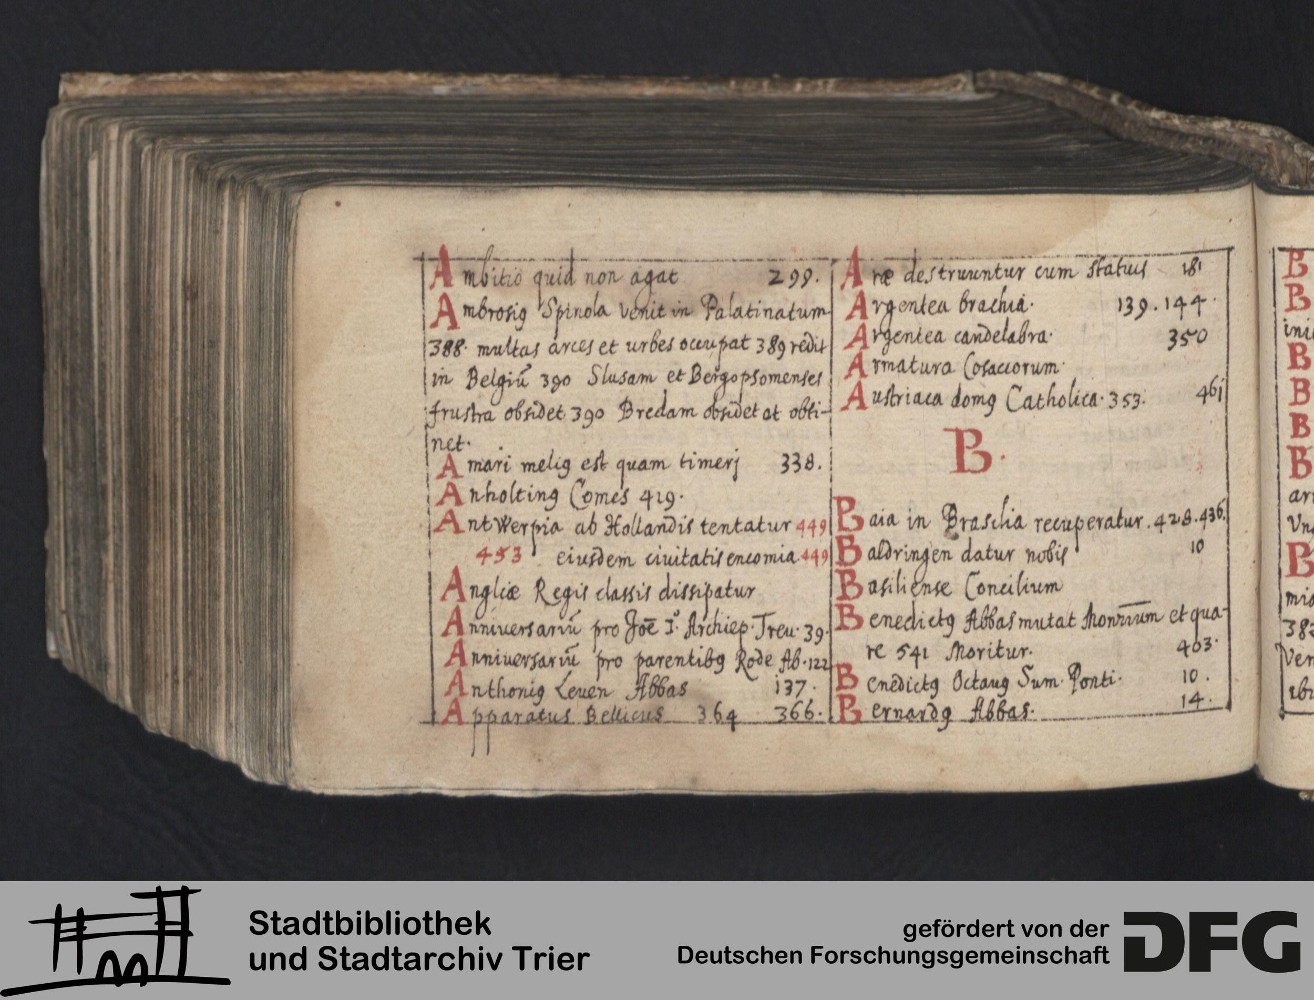 Ambitio quid non agat 299.
Ambrosiꝯ Spinola venit in Palatinatum
388. multas arces et urbes occupat 389 redit
in Belgiū 390 Slusam et Bergopsomenses
frustra obsidet 390 Bredam obsidet at obti-
net.
Amari meliꝯ est quam timerj 338.
Anholtinꝯ Comes 419.
AntWerpia ab Hollandis tentatur 449
453 eiusdem civitatis encomia 449
Angliæ Regis classis dissipatur
Anniversariū pro Joē I. Archiep. Treu. 39.
Anniversariū pro parentibꝯ Rode Ab. 122
Anthoniꝯ Leuen Abbas 137.
Apparatus Bellicus 364 366.
Aræ destruuntur cum statuis 181
Argentea brachia. 139. 144.
Argentea candelabra. 350
Armatura Cosaccorum.
Austriaca domꝯ Catholica. 353. 461
B.
Baia in Brasilia recuperatur. 428. 436.
Baldringen datur nobis 10
Basiliense Concilium
Benedictꝯ Abbas mutat et qua-
re 541 Moritur. 403.
Benedictꝯ Octavꝯ Sum. Ponti. 10.
Bernardꝯ Abbas. 14.
B
B
B
B
B
B
B
Stadtbibliothek
und Stadtarchiv Trier
gefördert von der
Deutschen Forschungsgemeinschaft
DFG